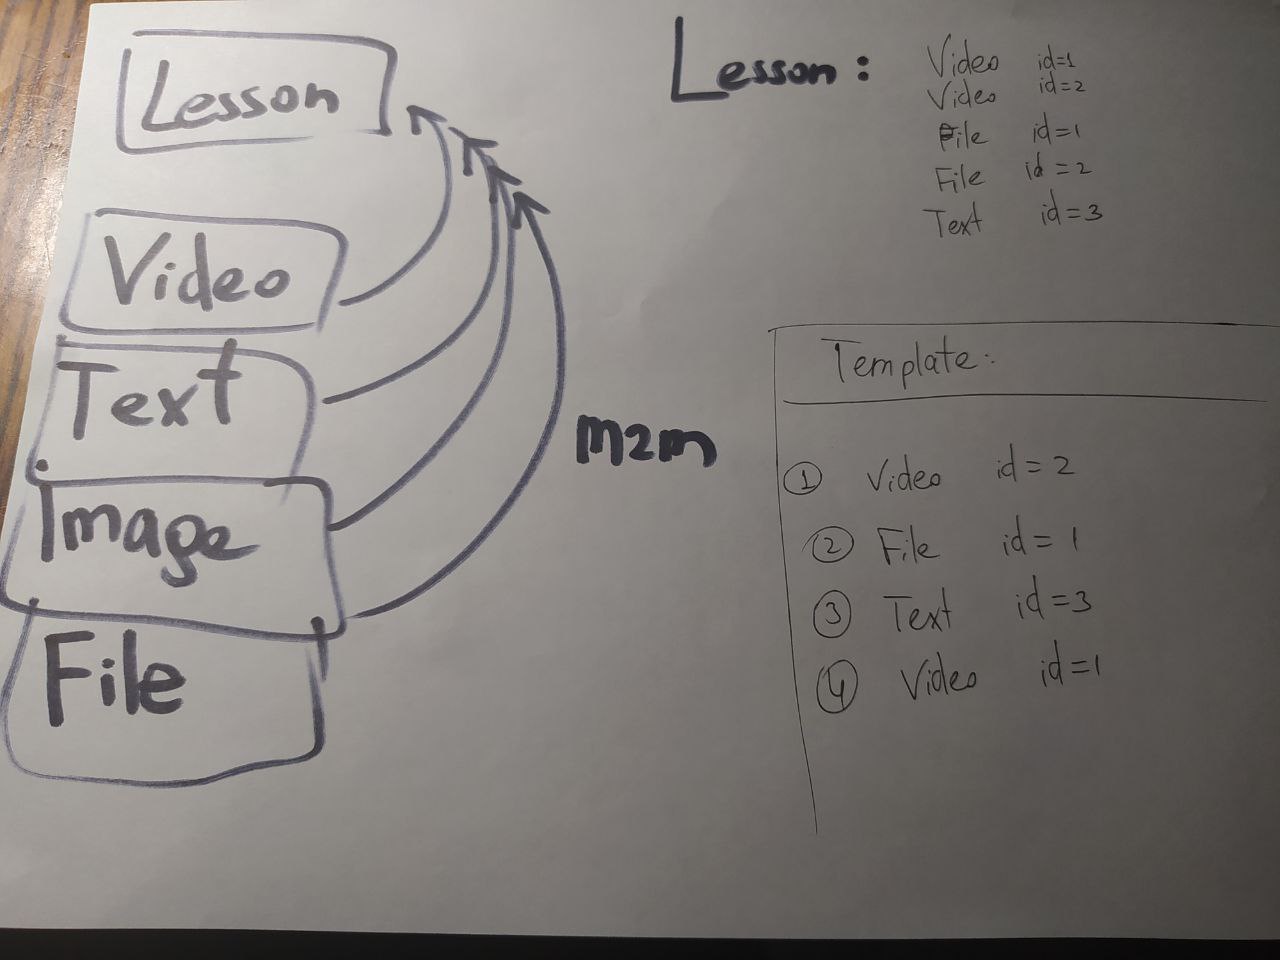 Lesson
Video
Text
Image
File
m2m
Lesson:
Video id=1
Video id=2
File id=1
File id=2
Text id=3
Template:
1 Video id=2
2 File id=1
3 Text id=3
4 Video id=1